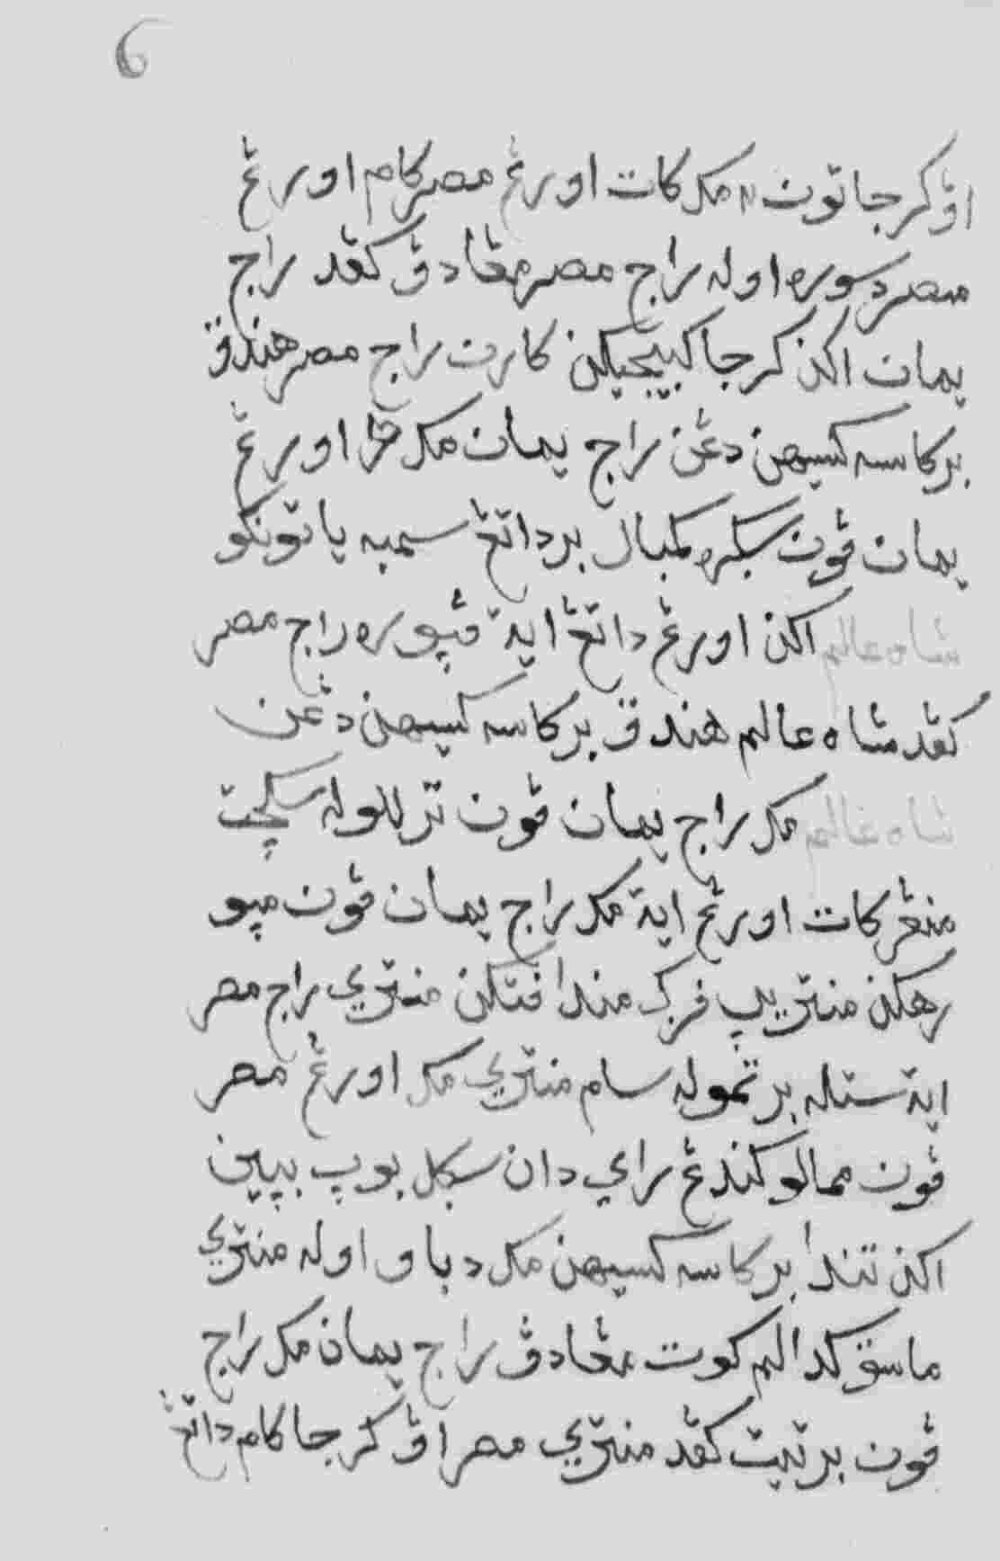 6
اڤ كرجا تون ٢ مك كات اورڠ مصر كام اورڠ
مصر دسوره اوله راج مصر مڠادڤ كڤد راج
يمان اكن كرجا كبيجيكن كارن راج مصر هندق
بركاسه كسيهن دڠن راج يمان مك حرا اورڠ
يمان ڤون سݢره كمبال برداتڠ سمبه يا تونكو
شاه عالم اكن اورڠ داتڠ ايت ڤڽوره راج مصر
كڤد شاه عالم هندق بركاسه كسيهن دڠن
شاه عالم مك راج يمان ڤون ترلالو له سكچيت
منڠر كات اورڠ ايت مك راج يمان ڤون مڽو
رهكن منتريڽ ڤرݢ مندافتكن منتري راج مصر
ايت ستله برتمو له سام منتري مك اورڠ مصر
ڤون ممالو كندڠ راي دان سݢل بوڽ بڽين
اكن تندا بركاسه كسيهن مك دباو اوله منتري
ماسق كدالم كوت مڠادڤ راج يمان مك راج
ڤون برتيت كڤد منتري مصر اڤ كرجا كام داتڠ